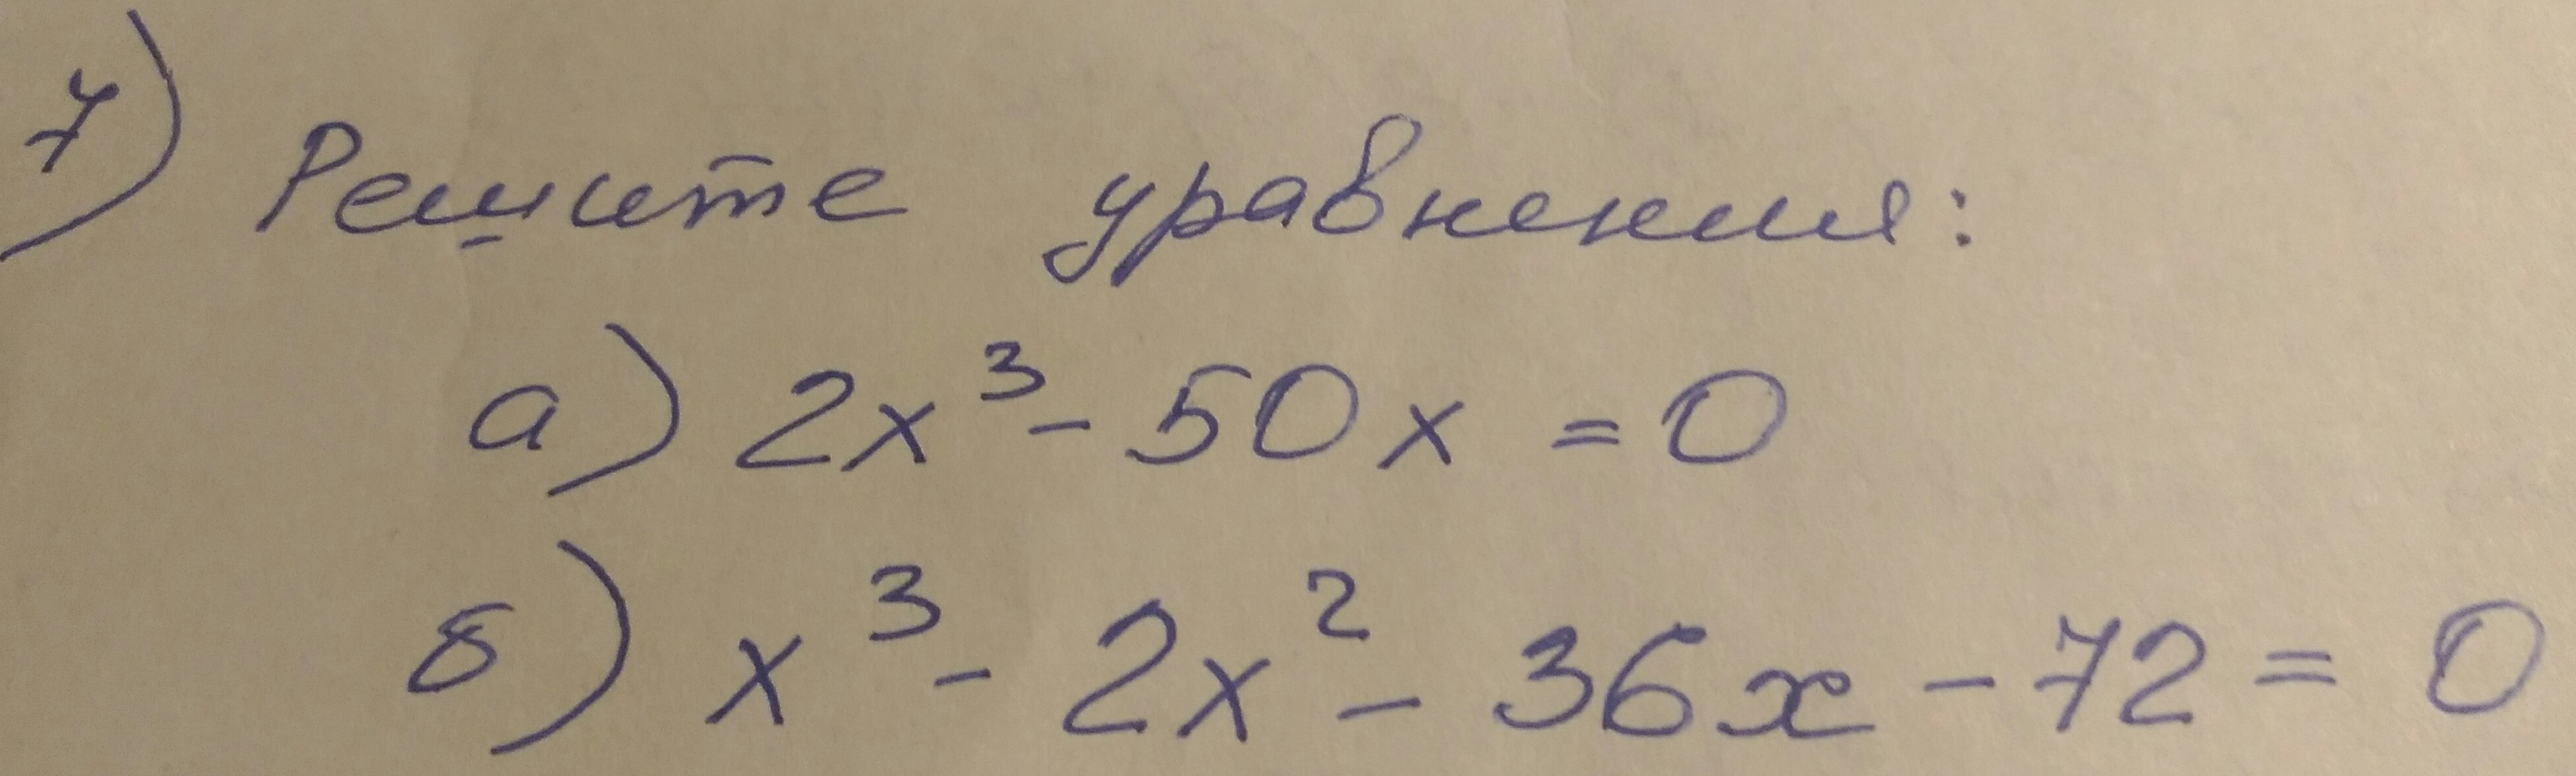 7) Решите уравнения:
а) 2x³ - 50x = 0
б) x³ - 2x² - 36x - 72 = 0